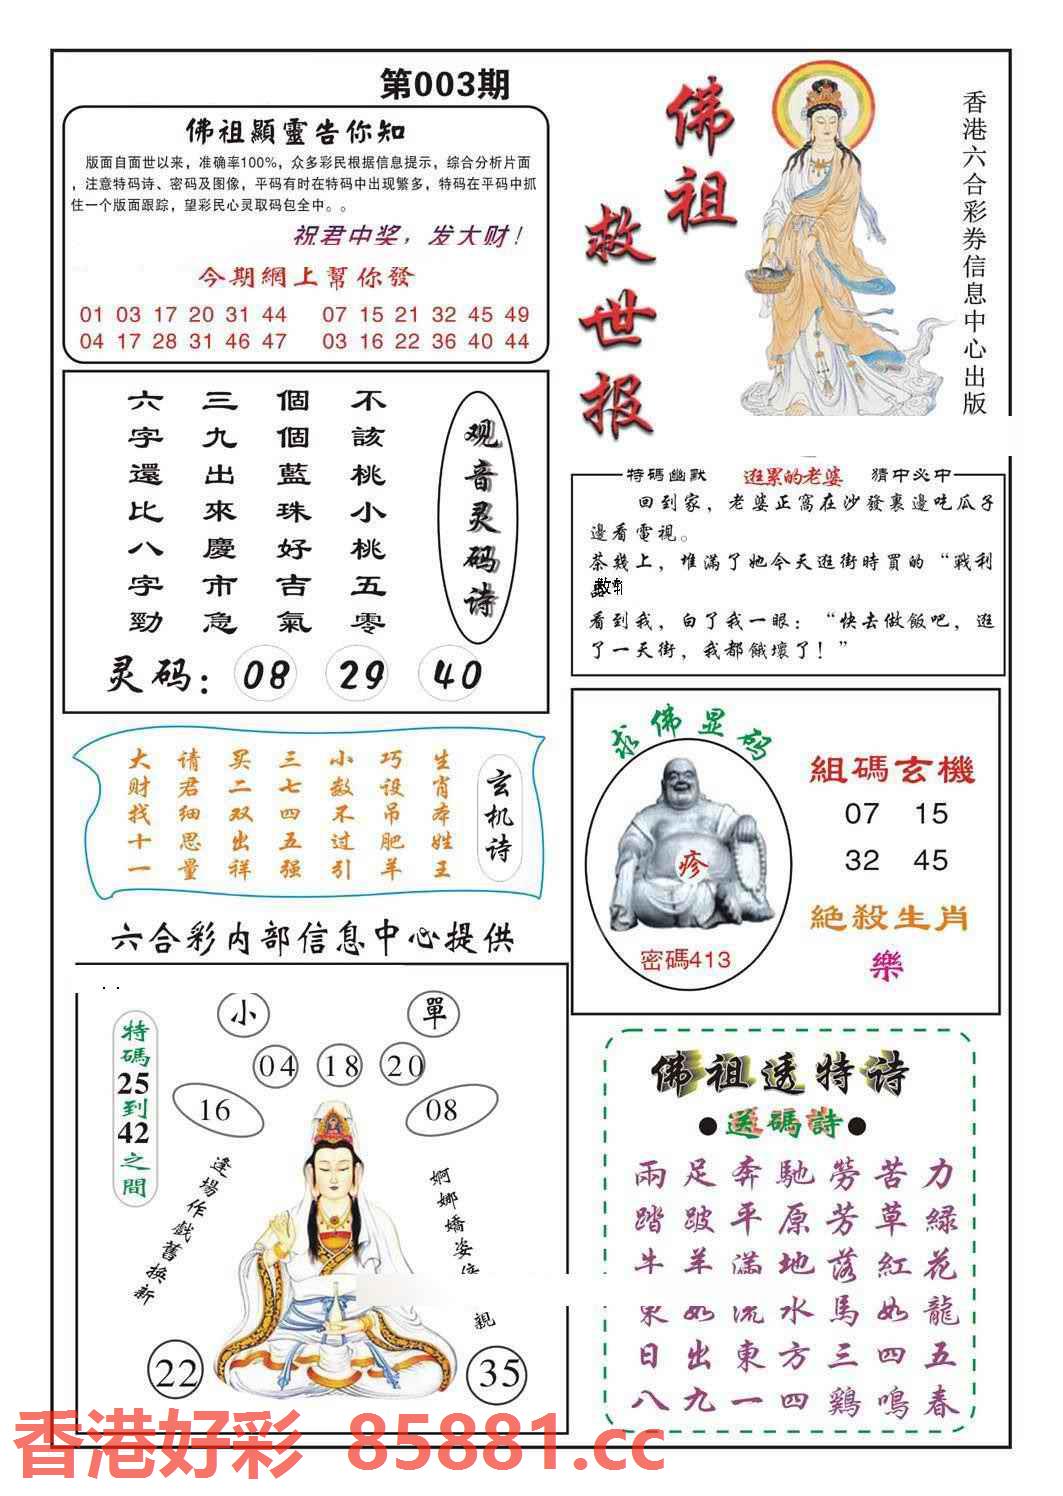 第003期
佛祖顯靈告你知
版面自面世以来，准确率100%，众多彩民根据信息提示，综合分析片面
，注意特码诗、密码及图像，平码有时在特码中出现繁多，特码在平码中抓
住一个版面跟踪，望彩民心灵取码包全中。。
祝君中奖，发大财！
今期網上幫你發
01 03 17 20 31 44 07 15 21 32 45 49
04 17 28 31 46 47 03 16 22 36 40 44
佛祖
救世报
香港六合彩券信息中心出版
观音灵码诗
不該桃小桃五零
個個藍珠好吉氣
三九出來慶市急
六字還比八字勁
灵码：08 29 40
特碼幽默 逛累的老婆 猜中必中
回到家，老婆正窩在沙發裏邊吃瓜子
邊看電視。
茶幾上，堆滿了她今天逛街時買的“戰利
看到我，白了我一眼：“快去做飯吧，逛
了一天街，我都餓壞了！”
玄机诗
生肖本姓王
巧设吊肥羊
小数不过引
三七四五强
买二双出祥
请君细思量
大财找十一
求佛显码
疹
密碼413
組碼玄機
07 15
32 45
絕殺生肖
樂
六合彩内部信息中心提供
特碼25到42之間
小 單
04 18 20
16 08
逢場作戲舊換新
婀娜嬌姿
親
22 35
佛祖透特诗
●送碼詩●
兩足奔馳勞苦力
踏跛平原芳草緑
牛羊滿地落紅花
如流水馬如龍
日出東方三四五
八九一四鷄鳴春
香港好彩 85881.cc